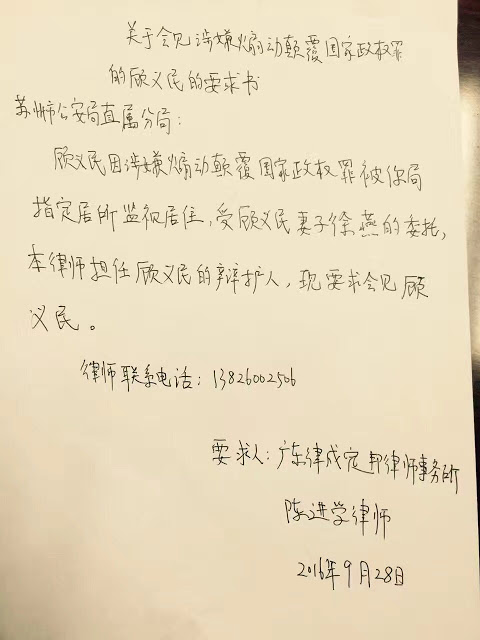 关于会见涉嫌煽动颠覆国家政权罪
的顾义民的要求书
苏州市公安局直属分局:
顾义民因涉嫌煽动颠覆国家政权罪被你局
指定居所监视居住,受顾义民妻子徐燕的委托,
本律师担任顾义民的辩护人,现要求会见顾
义民。
律师联系电话:13826002506
要求人:广东律成定邦律师事务所
陈进学律师
2016年9月28日